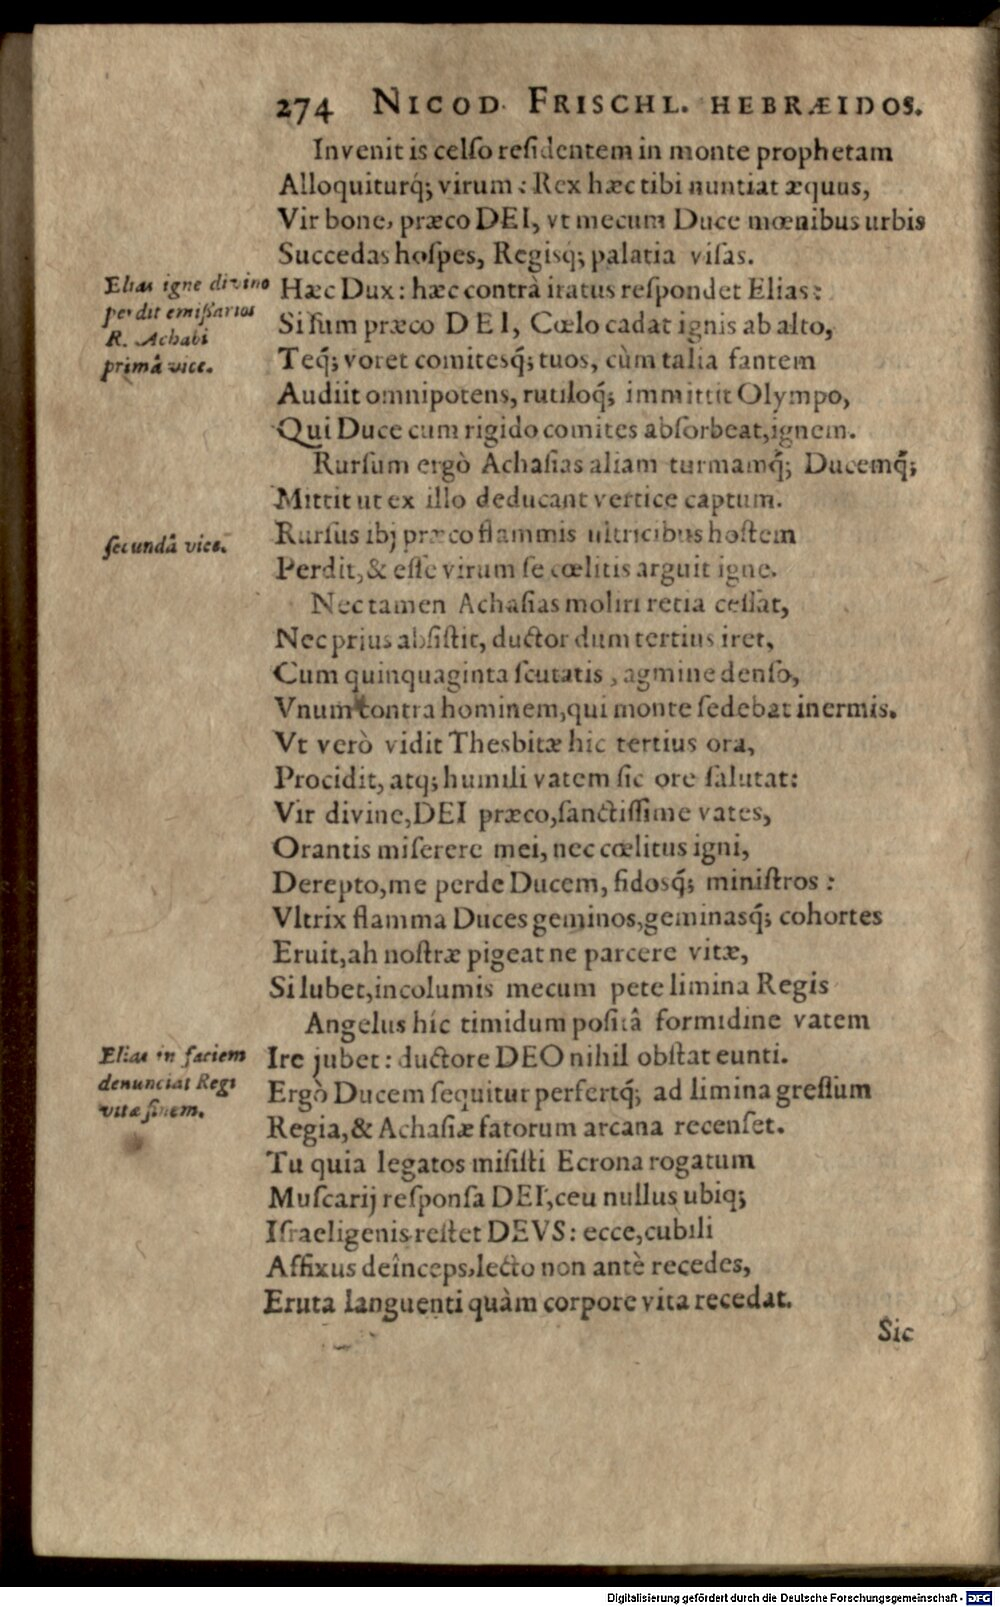 274 NICOD. FRISCHL. HEBRÆIDOS.
Invenit is celſo reſidentem in monte prophetam
Alloquiturq́; virum: Rex hæc tibi nuntiat æquus,
Vir bone, præco DEI, vt mecum Duce mœnibus urbis
Succedas hoſpes, Regisq; palatia viſas.
Elias igne divino
perdit emiſſarios
R. Achabi
primâ vice.
Hæc Dux: hæc contrà iratus reſpondet Elias:
Si ſum præco DEI, Cœlo cadat ignis ab alto,
Teq́; voret comitesq́; tuos, cùm talia fantem
Audiit omnipotens, rutiloq́; immittit Olympo,
Qui Duce cum rigido comites abſorbeat, ignem.
Rurſum ergò Achaſias aliam turmamq́; Ducemq́;
Mittit ut ex illo deducant vertice captum.
ſecundâ vice.
Rurſus ibj præco flammis ultricibus hoſtem
Perdit, & eſſe virum ſe cœlitis arguit igne.
Nec tamen Achaſias moliri retia ceſſat,
Nec prius abſiſtit, ductor dum tertius iret,
Cum quinquaginta ſcutatis, agmine denſo,
Vnum contra hominem, qui monte ſedebat inermis.
Vt verò vidit Thesbitæ hic tertius ora,
Procidit, atq; humili vatem ſic ore ſalutat:
Vir divine, DEI præco, ſanctiſſime vates,
Orantis miſerere mei, nec cœlitus igni,
Derepto, me perde Ducem, fidosq́; miniſtros:
Vltrix flamma Duces geminos, geminasq́; cohortes
Eruit, ah noſtræ pigeat ne parcere vitæ,
Si lubet, incolumis mecum pete limina Regis
Angelus hic timidum poſitâ formidine vatem
Elias in faciem
denunciat Regi
vitæ finem.
Ire jubet: ductore DEO nihil obſtat eunti.
Ergò Ducem ſequitur perfertq́; ad limina greſſum
Regia, & Achaſiæ fatorum arcana recenſet.
Tu quia legatos miſiſti Ecrona rogatum
Muſcarij reſponſa DEI, ceu nullus ubiq;
Iſraeligenis reſtet DEVS: ecce, cubili
Affixus deînceps, lecto non antè recedes,
Eruta languenti quàm corpore vita recedat.
Sic
Digitalisierung gefördert durch die Deutsche Forschungsgemeinschaft - DFG